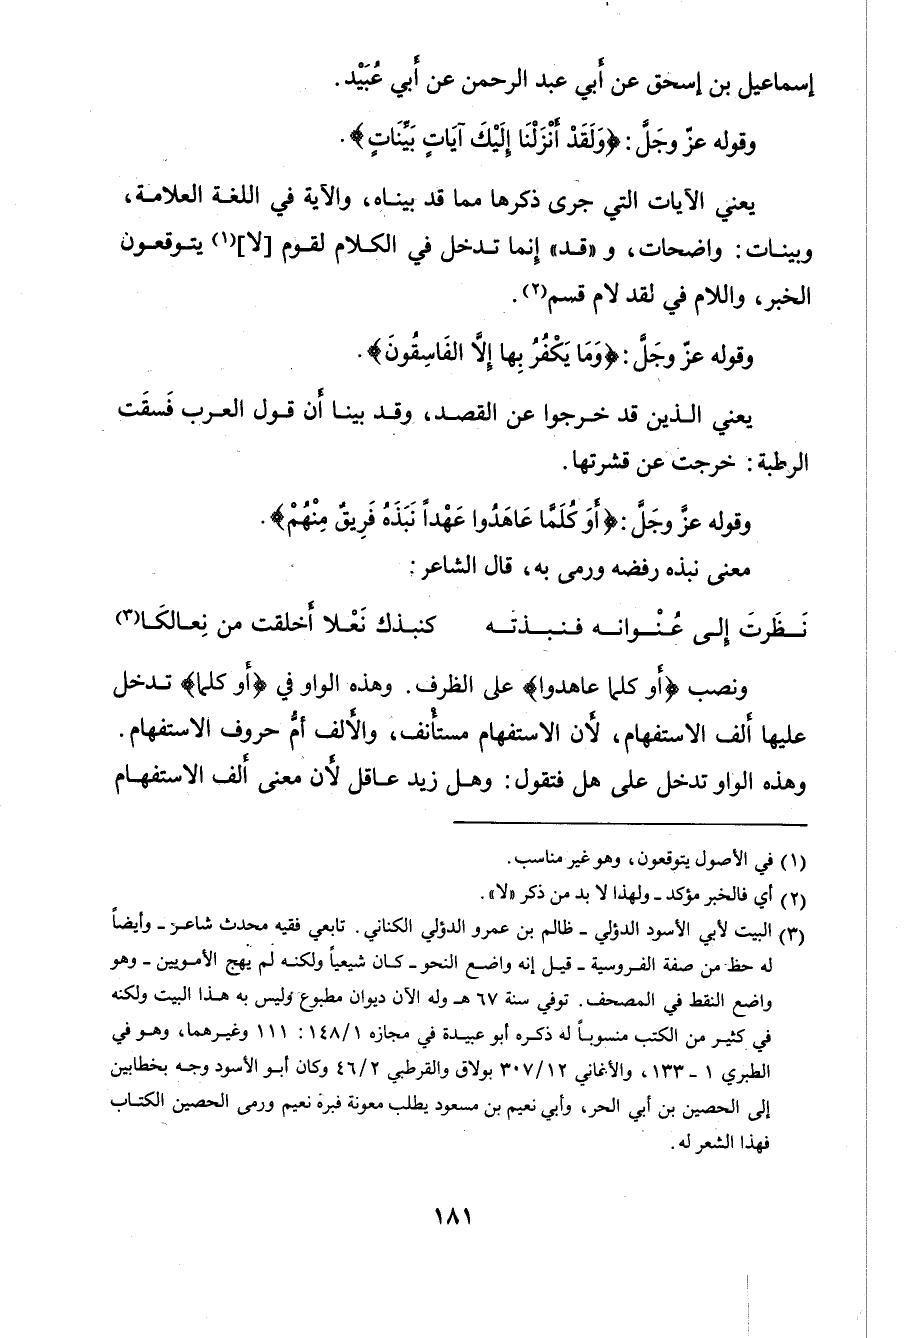 إسماعيل بن إسحق عن أَبي عبد الرحمن عن أَبي عُبَيْد.
وقوله عزّ وجَلَّ: ﴿وَلَقَدْ أَنْزَلْنَا إِلَيْكَ آيَاتٍ بَيِّنَاتٍ﴾.
يعني الآيات التي جرى ذكرها مما قد بيناه، والآية في اللغة العلامة،
وبينات: واضحات، و «قد» إنما تدخل في الكلام لقوم [لا](١) يتوقعون
الخبر، واللام في لقد لام قسم(٢).
وقوله عزّ وجَلَّ: ﴿وَمَا يَكْفُرُ بِها إِلَّا الفَاسِقُونَ﴾.
يعني الذين قد خرجوا عن القصد، وقد بينا أَن قول العرب فَسقَت
الرطبة: خرجت عن قشرتها.
وقوله عزَّ وجَلَّ: ﴿أَوَ كُلَمَّا عَاهَدُوا عَهْداً نَبَذَهُ فَرِيقٌ مِنْهُمْ﴾.
معنى نبذه رفضه ورمى به، قال الشاعر:
نَظَرتَ إِلى عُنْوانه فنبذته كنبذك نَعْلا أَخلقت من نِعالكَا(٣)
ونصب ﴿أَو كلما عاهدوا﴾ على الظرف. وهذه الواو في ﴿أَو كلما﴾ تدخل
عليها أَلف الاستفهام، لأَن الاستفهام مستأْنف، والأَلف أمُّ حروف الاستفهام.
وهذه الواو تدخل على هل فتقول: وهل زيد عاقل لأَن معنى أَلف الاستفهام
(١) في الأصول يتوقعون، وهو غير مناسب.
(٢) أي فالخبر مؤكد ـ ولهذا لا بد من ذكر «لا».
(٣) البيت لأبي الأسود الدؤلي ـ ظالم بن عمرو الدؤلي الكناني. تابعي فقيه محدث شاعر ـ وأيضاً
له حظ من صفة الفروسية ـ قيل إنه واضع النحو ـ كان شيعياً ولكنه لم يهج الأمويين ـ وهو
واضع النقط في المصحف. توفي سنة ٦٧ هـ وله الآن ديوان مطبوع وليس به هذا البيت ولكنه
في كثير من الكتب منسوباً له ذكره أبو عبيدة في مجازه ١/١٤٨: ١١١ وغيرهما، وهو في
الطبري ١ ـ ١٣٣، والأغاني ١٢/٣٠٧ بولاق والقرطبي ٢/٤٦ وكان أبو الأسود وجه بخطابين
إلى الحصين بن أبي الحر، وأبي نعيم بن مسعود يطلب معونة فبره نعيم ورمى الحصين الكتاب
فهذا الشعر له.
١٨١